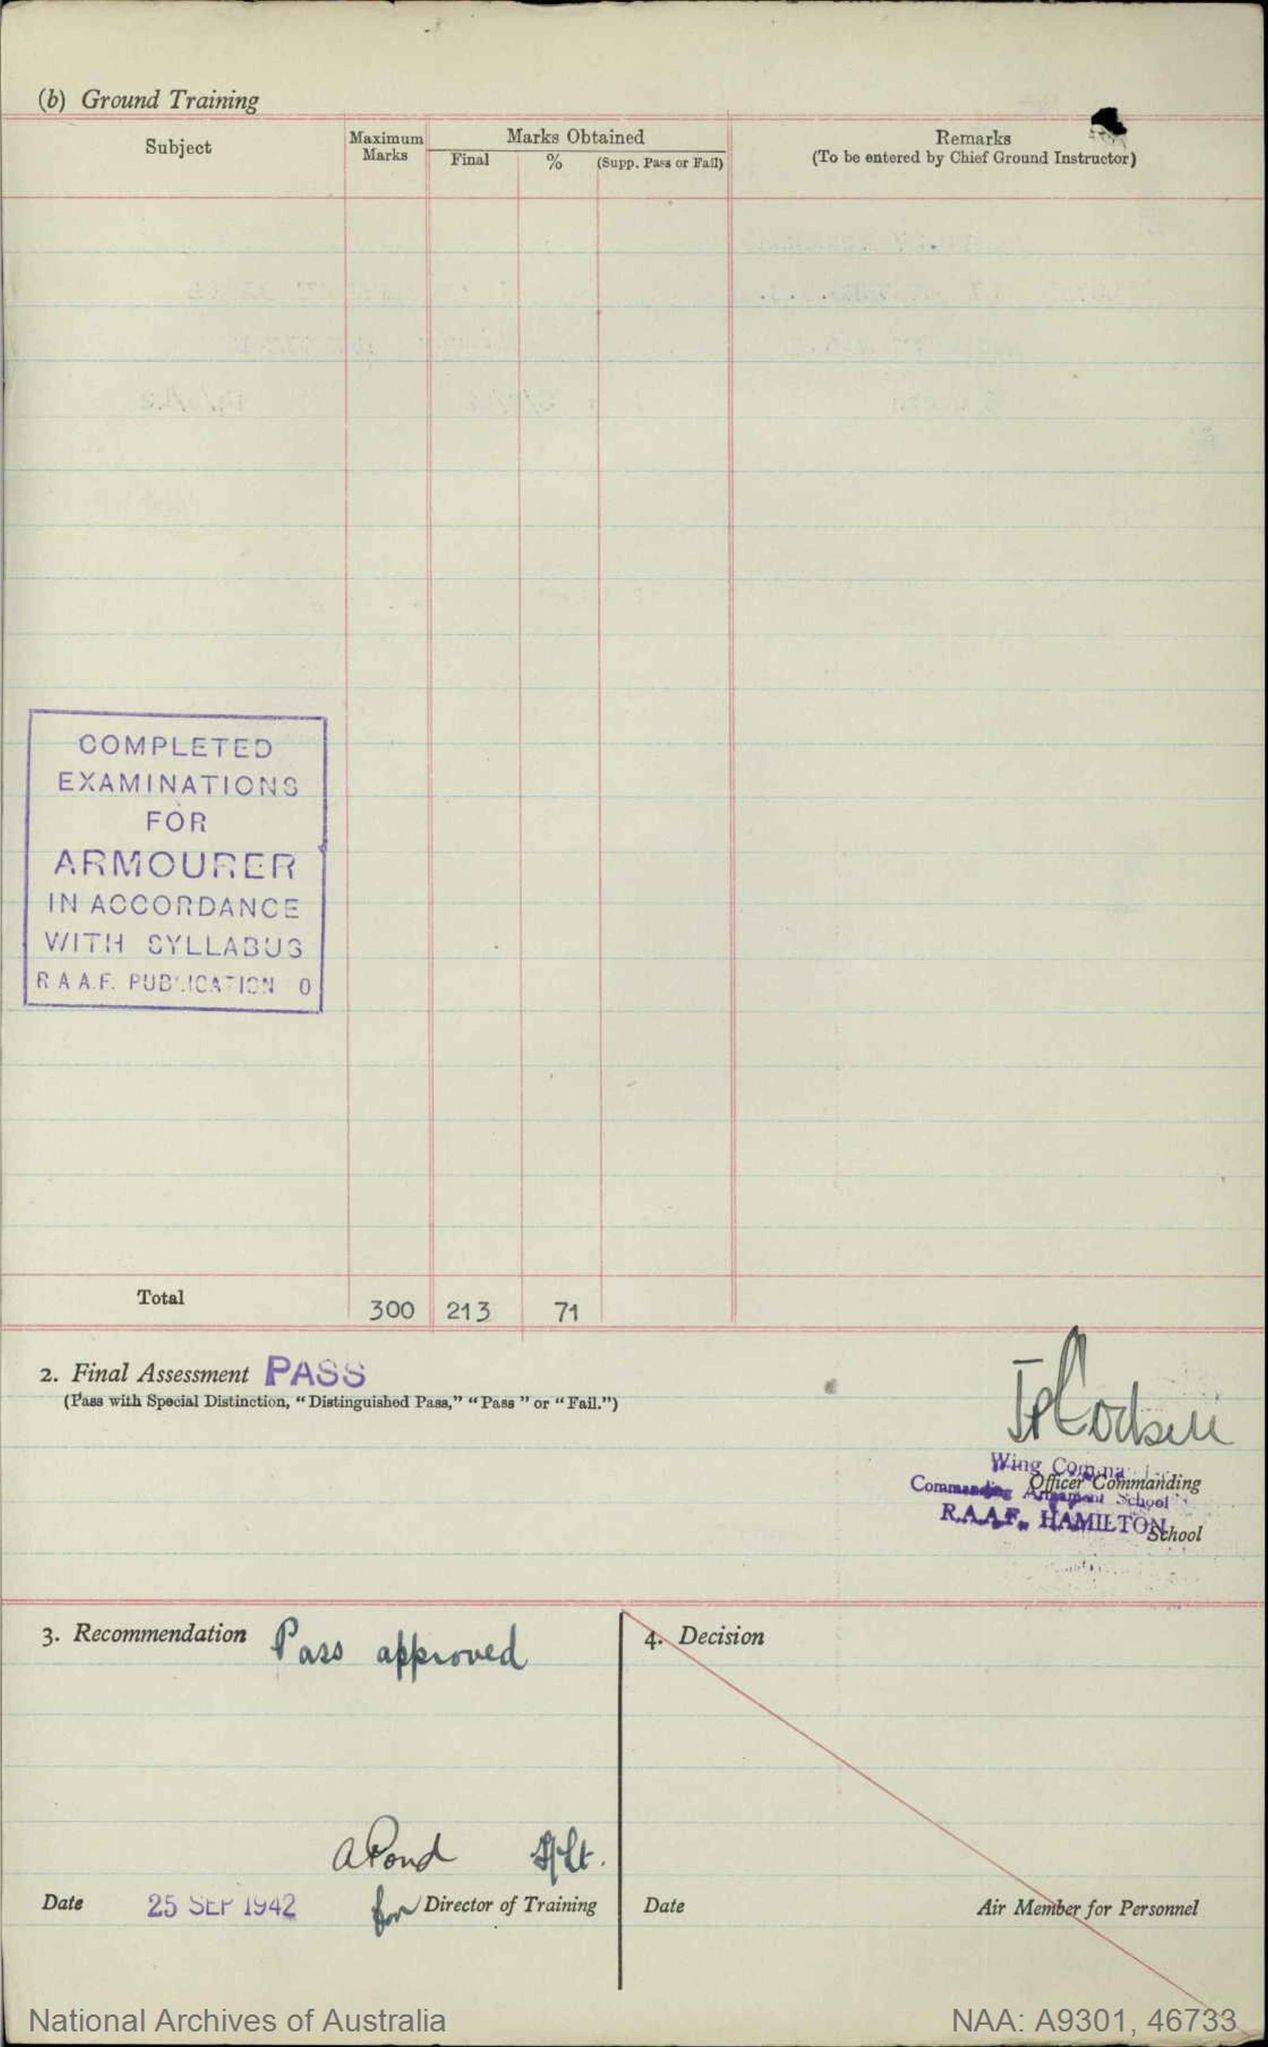 (b) Ground Training
Subject
Maximum Marks
Marks Obtained
Final
%
(Supp. Pass or Fail)
Remarks
(To be entered by Chief Ground Instructor)
COMPLETED
EXAMINATIONS
FOR
ARMOURER
IN ACCORDANCE
WITH SYLLABUS
R.A.A.F. PUBLICATION 0
Total 300 213 71
2. Final Assessment PASS
(Pass with Special Distinction, “Distinguished Pass,” “Pass” or “Fail.”)
Wing
Officer Commanding
Commanding Armament School
R.A.A.F. HAMILTON
School
3. Recommendation Pass approved
4. Decision
A Pond F/Lt.
Date 25 SEP 1942 for Director of Training
Date Air Member for Personnel
National Archives of Australia NAA: A9301, 46733